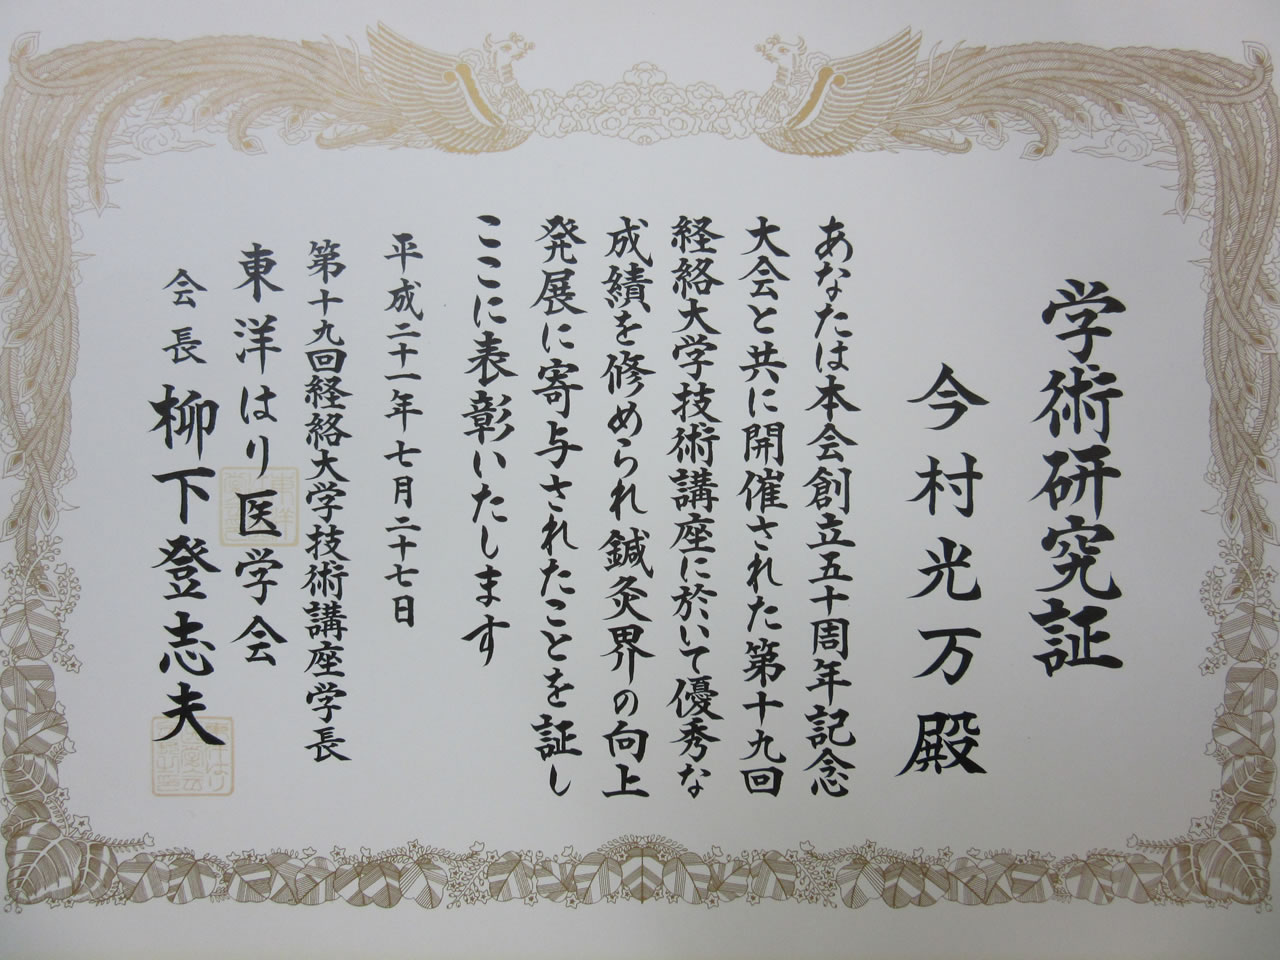 学術研究証
今村光万殿
あなたは本会創立五十周年記念
大会と共に開催された第十九回
経絡大学技術講座に於いて優秀な
成績を修められ鍼灸界の向上
発展に寄与されたことを証し
ここに表彰いたします
平成二十一年七月二十七日
第十九回経絡大学技術講座学長
東洋はり医学会
会長 柳下登志夫